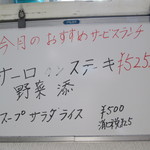 今月のおすすめサービスランチ
サーロインステーキ ¥525
野菜 添
スープ サラダ ライス ¥500
消税25